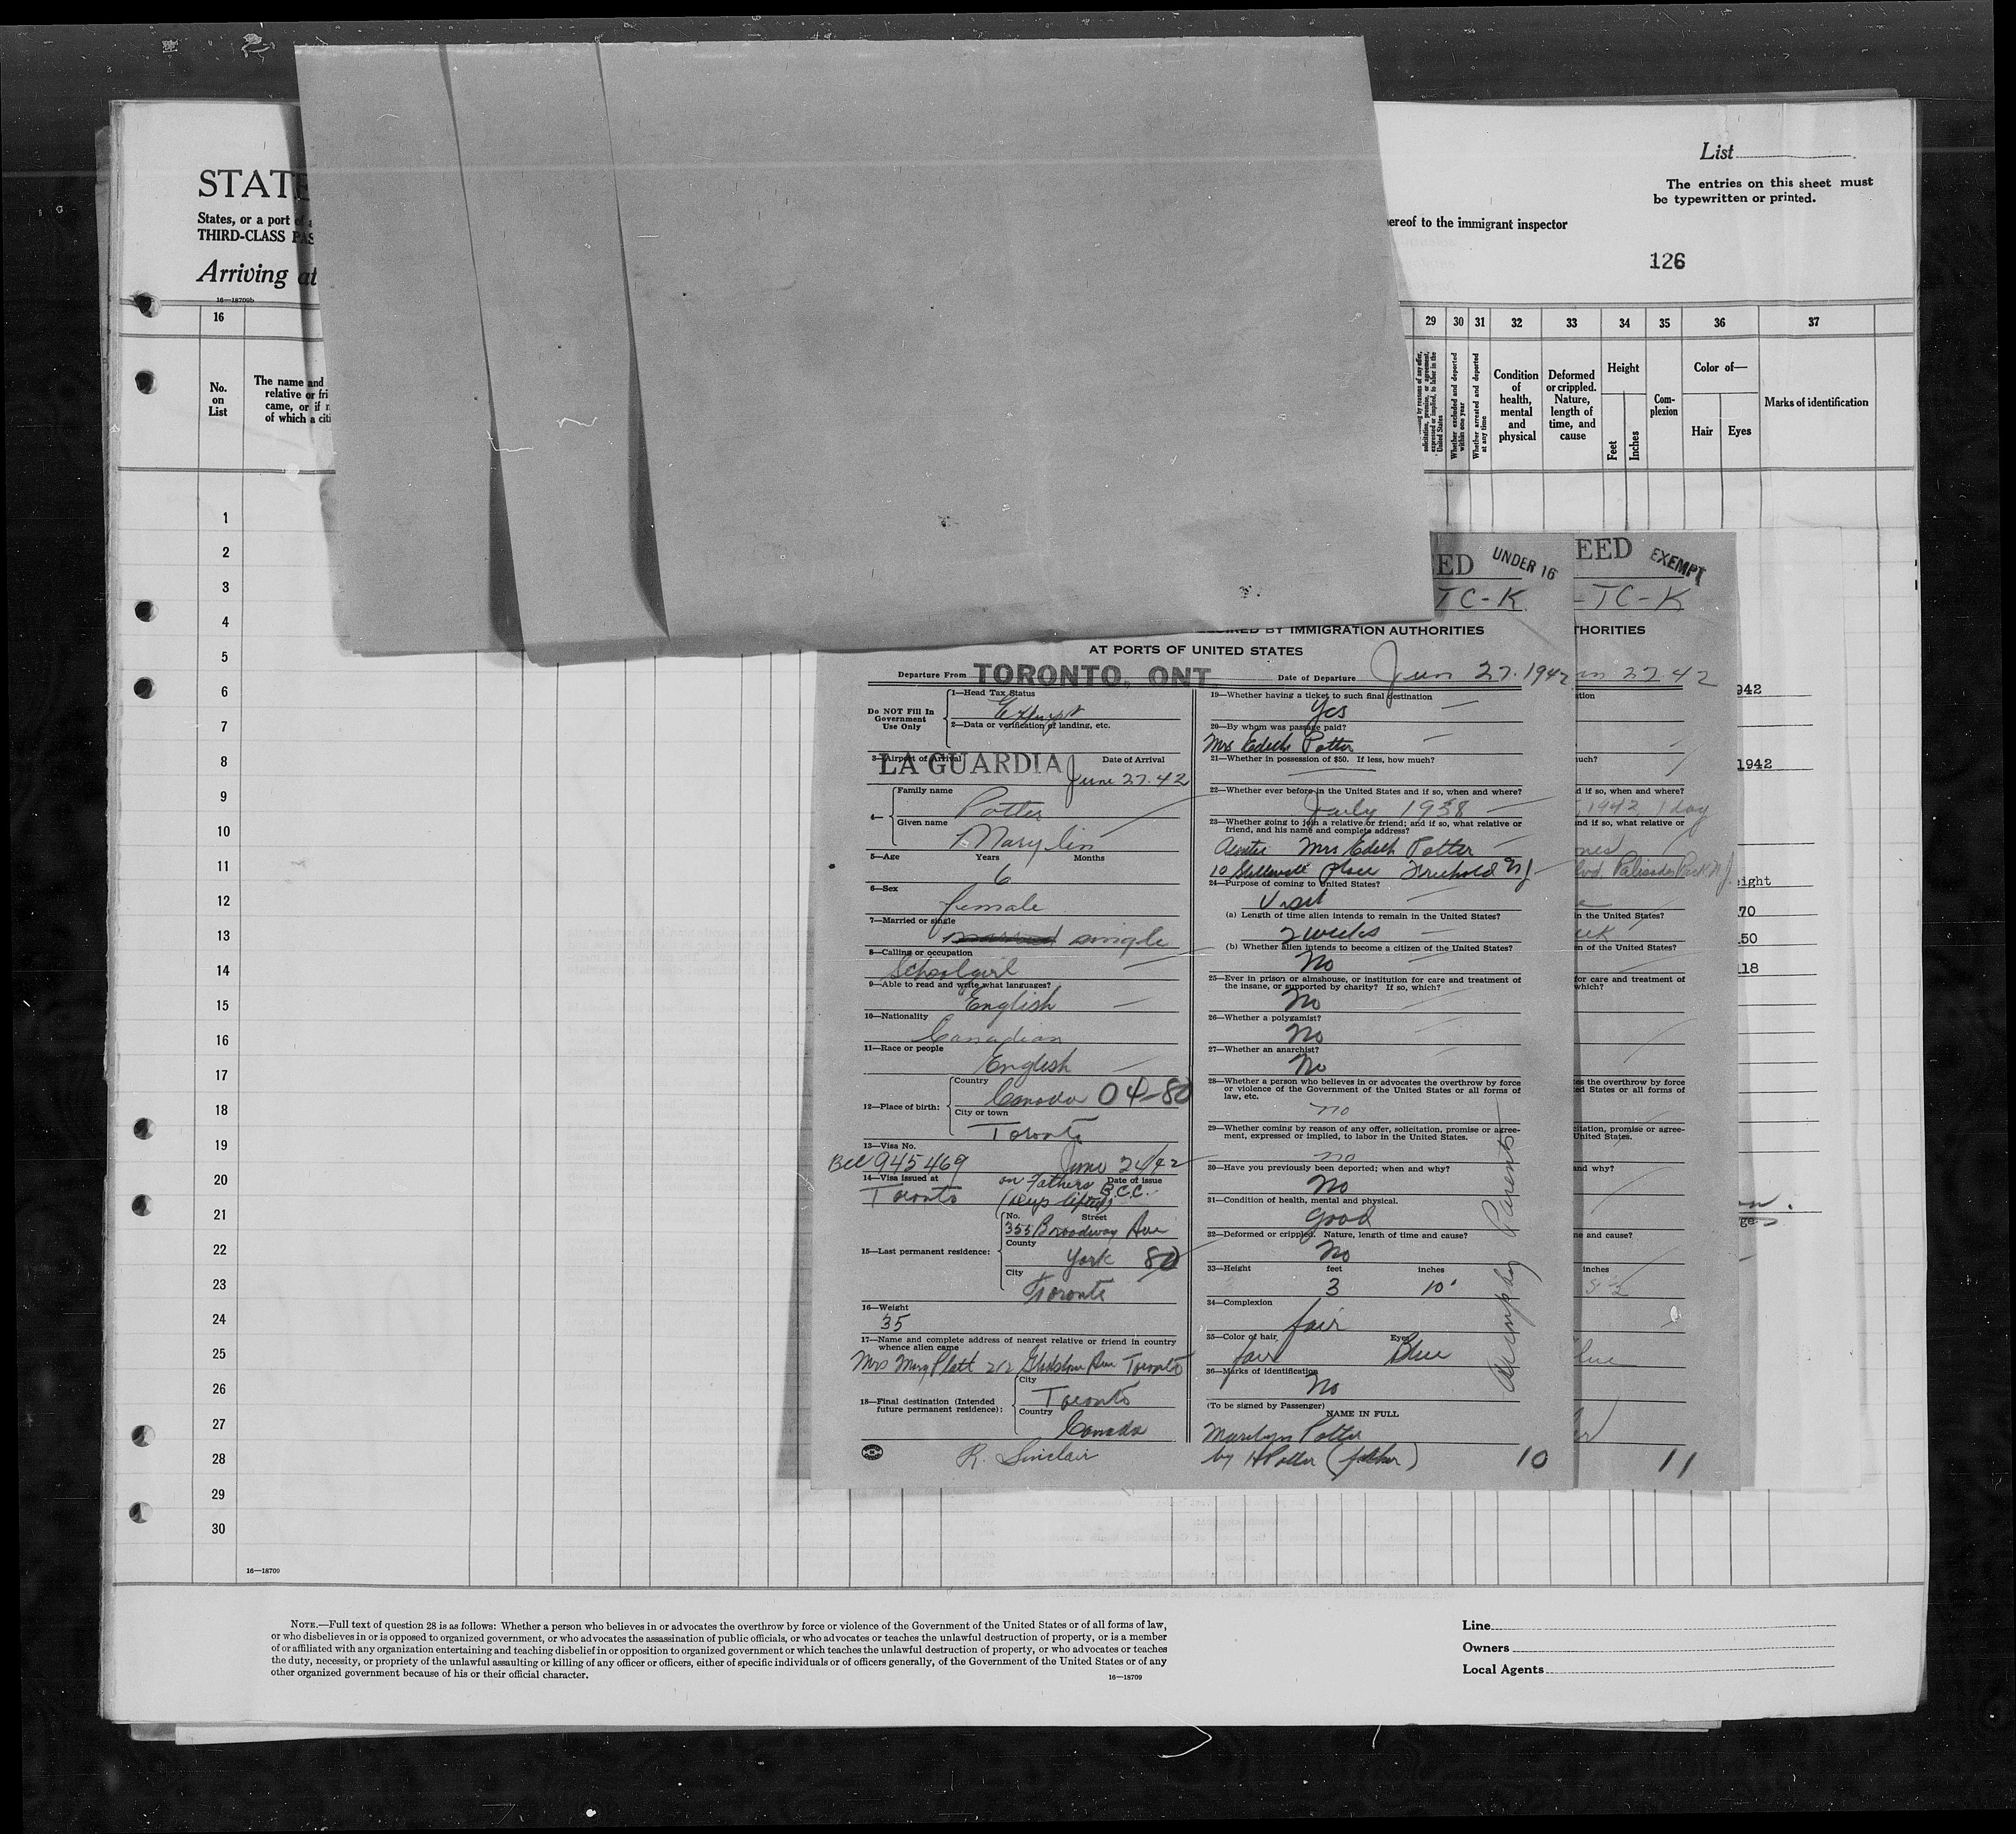 STATE
States, or a port of a
THIRD-CLASS PAS
Arriving at
16—18709b
List
The entries on this sheet must
be typewritten or printed.
hereof to the immigrant inspector
126
16
29 30 31 32 33 34 35 36 37
No. on List
The name and
relative or fri
came, or if n
of which a citi
solicitation, promise, or agreement, expressed or implied, to labor in the United States
Whether excluded and deported within one year
Whether arrested and deported at any time
Condition of health, mental and physical
Deformed or crippled. Nature, length of time, and cause
Height
Feet
Inches
Com-plexion
Color of—
Hair
Eyes
Marks of identification
1
2
3
4
5
6
7
8
9
10
11
12
13
14
15
16
17
18
19
20
21
22
23
24
25
26
27
28
29
30
16—18709
ED UNDER 16
TC-K
BY IMMIGRATION AUTHORITIES
AT PORTS OF UNITED STATES
Departure From TORONTO, ONT
Date of Departure Jun 27. 1942
Do NOT Fill In
Government
Use Only
1—Head Tax Status
Exempt
2—Data or verification of landing, etc.
3—Airport of Arrival
Date of Arrival
LA GUARDIA June 27. 42
4—
Family name
Potter
Given name
Marylin
5—Age Years Months
6
6—Sex
female
7—Married or single
married single
8—Calling or occupation
Schoolgirl
9—Able to read and write what languages?
English
10—Nationality
Canadian
11—Race or people
English
12—Place of birth:
Country
Canada 04-80
City or town
Toronto
13—Visa No.
BCC 945469 June 24/42
14—Visa issued at
Date of issue
Toronto
on Fathers B.C.C.
(Dup lifted)
15—Last permanent residence:
No. Street
355 Broadway Ave
County
York 80
City
Toronto
16—Weight
35
17—Name and complete address of nearest relative or friend in country
whence alien came
Mrs Mary Platt 212 Gladstone Ave Toronto
18—Final destination (Intended
future permanent residence):
City
Toronto
Country
Canada
R. Sinclair
19—Whether having a ticket to such final destination
Yes
20—By whom was passage paid?
Mrs Edith Potter
21—Whether in possession of $50. If less, how much?
22—Whether ever before in the United States and if so, when and where?
July 1938
23—Whether going to join a relative or friend; and if so, what relative or
friend, and his name and complete address?
Auntie Mrs Edith Potter
10 place Freehold N.J.
24—Purpose of coming to United States?
Visit
(a) Length of time alien intends to remain in the United States?
2 weeks
(b) Whether alien intends to become a citizen of the United States?
No
25—Ever in prison or almshouse, or institution for care and treatment of
the insane, or supported by charity? If so, which?
No
26—Whether a polygamist?
No
27—Whether an anarchist?
No
28—Whether a person who believes in or advocates the overthrow by force
or violence of the Government of the United States or all forms of
law, etc.
no
29—Whether coming by reason of any offer, solicitation, promise or agree-
ment, expressed or implied, to labor in the United States.
no
30—Have you previously been deported; when and why?
No
31—Condition of health, mental and physical.
good
32—Deformed or crippled. Nature, length of time and cause?
No
33—Height feet inches
3 10
34—Complexion
fair
35—Color of hair Eyes
fair Blue
36—Marks of identification
No
(To be signed by Passenger)
NAME IN FULL
Marilyn Potter
by H Potter (father)
10
Accompany Parents
EED EXEMPT
-TC-K
THORITIES
27. 42
ation
much?
d if so, when and where?
1942 1 day
nd if so, what relative or
Blvd. Palisades Park N.J.
in the United States?
en of the United States?
for care and treatment of
which?
es the overthrow by force
ed States or all forms of
citation, promise or agree-
United States.
and why?
ne and cause?
inches
lue
11
942
1942
eight
70
50
118
ge
NOTE.—Full text of question 28 is as follows: Whether a person who believes in or advocates the overthrow by force or violence of the Government of the United States or of all forms of law,
or who disbelieves in or is opposed to organized government, or who advocates the assassination of public officials, or who advocates or teaches the unlawful destruction of property, or is a member
of or affiliated with any organization entertaining and teaching disbelief in or opposition to organized government or which teaches the unlawful destruction of property, or who advocates or teaches
the duty, necessity, or propriety of the unlawful assaulting or killing of any officer or officers, either of specific individuals or of officers generally, of the Government of the United States or of any
other organized government because of his or their official character.
16—18709
Line
Owners
Local Agents